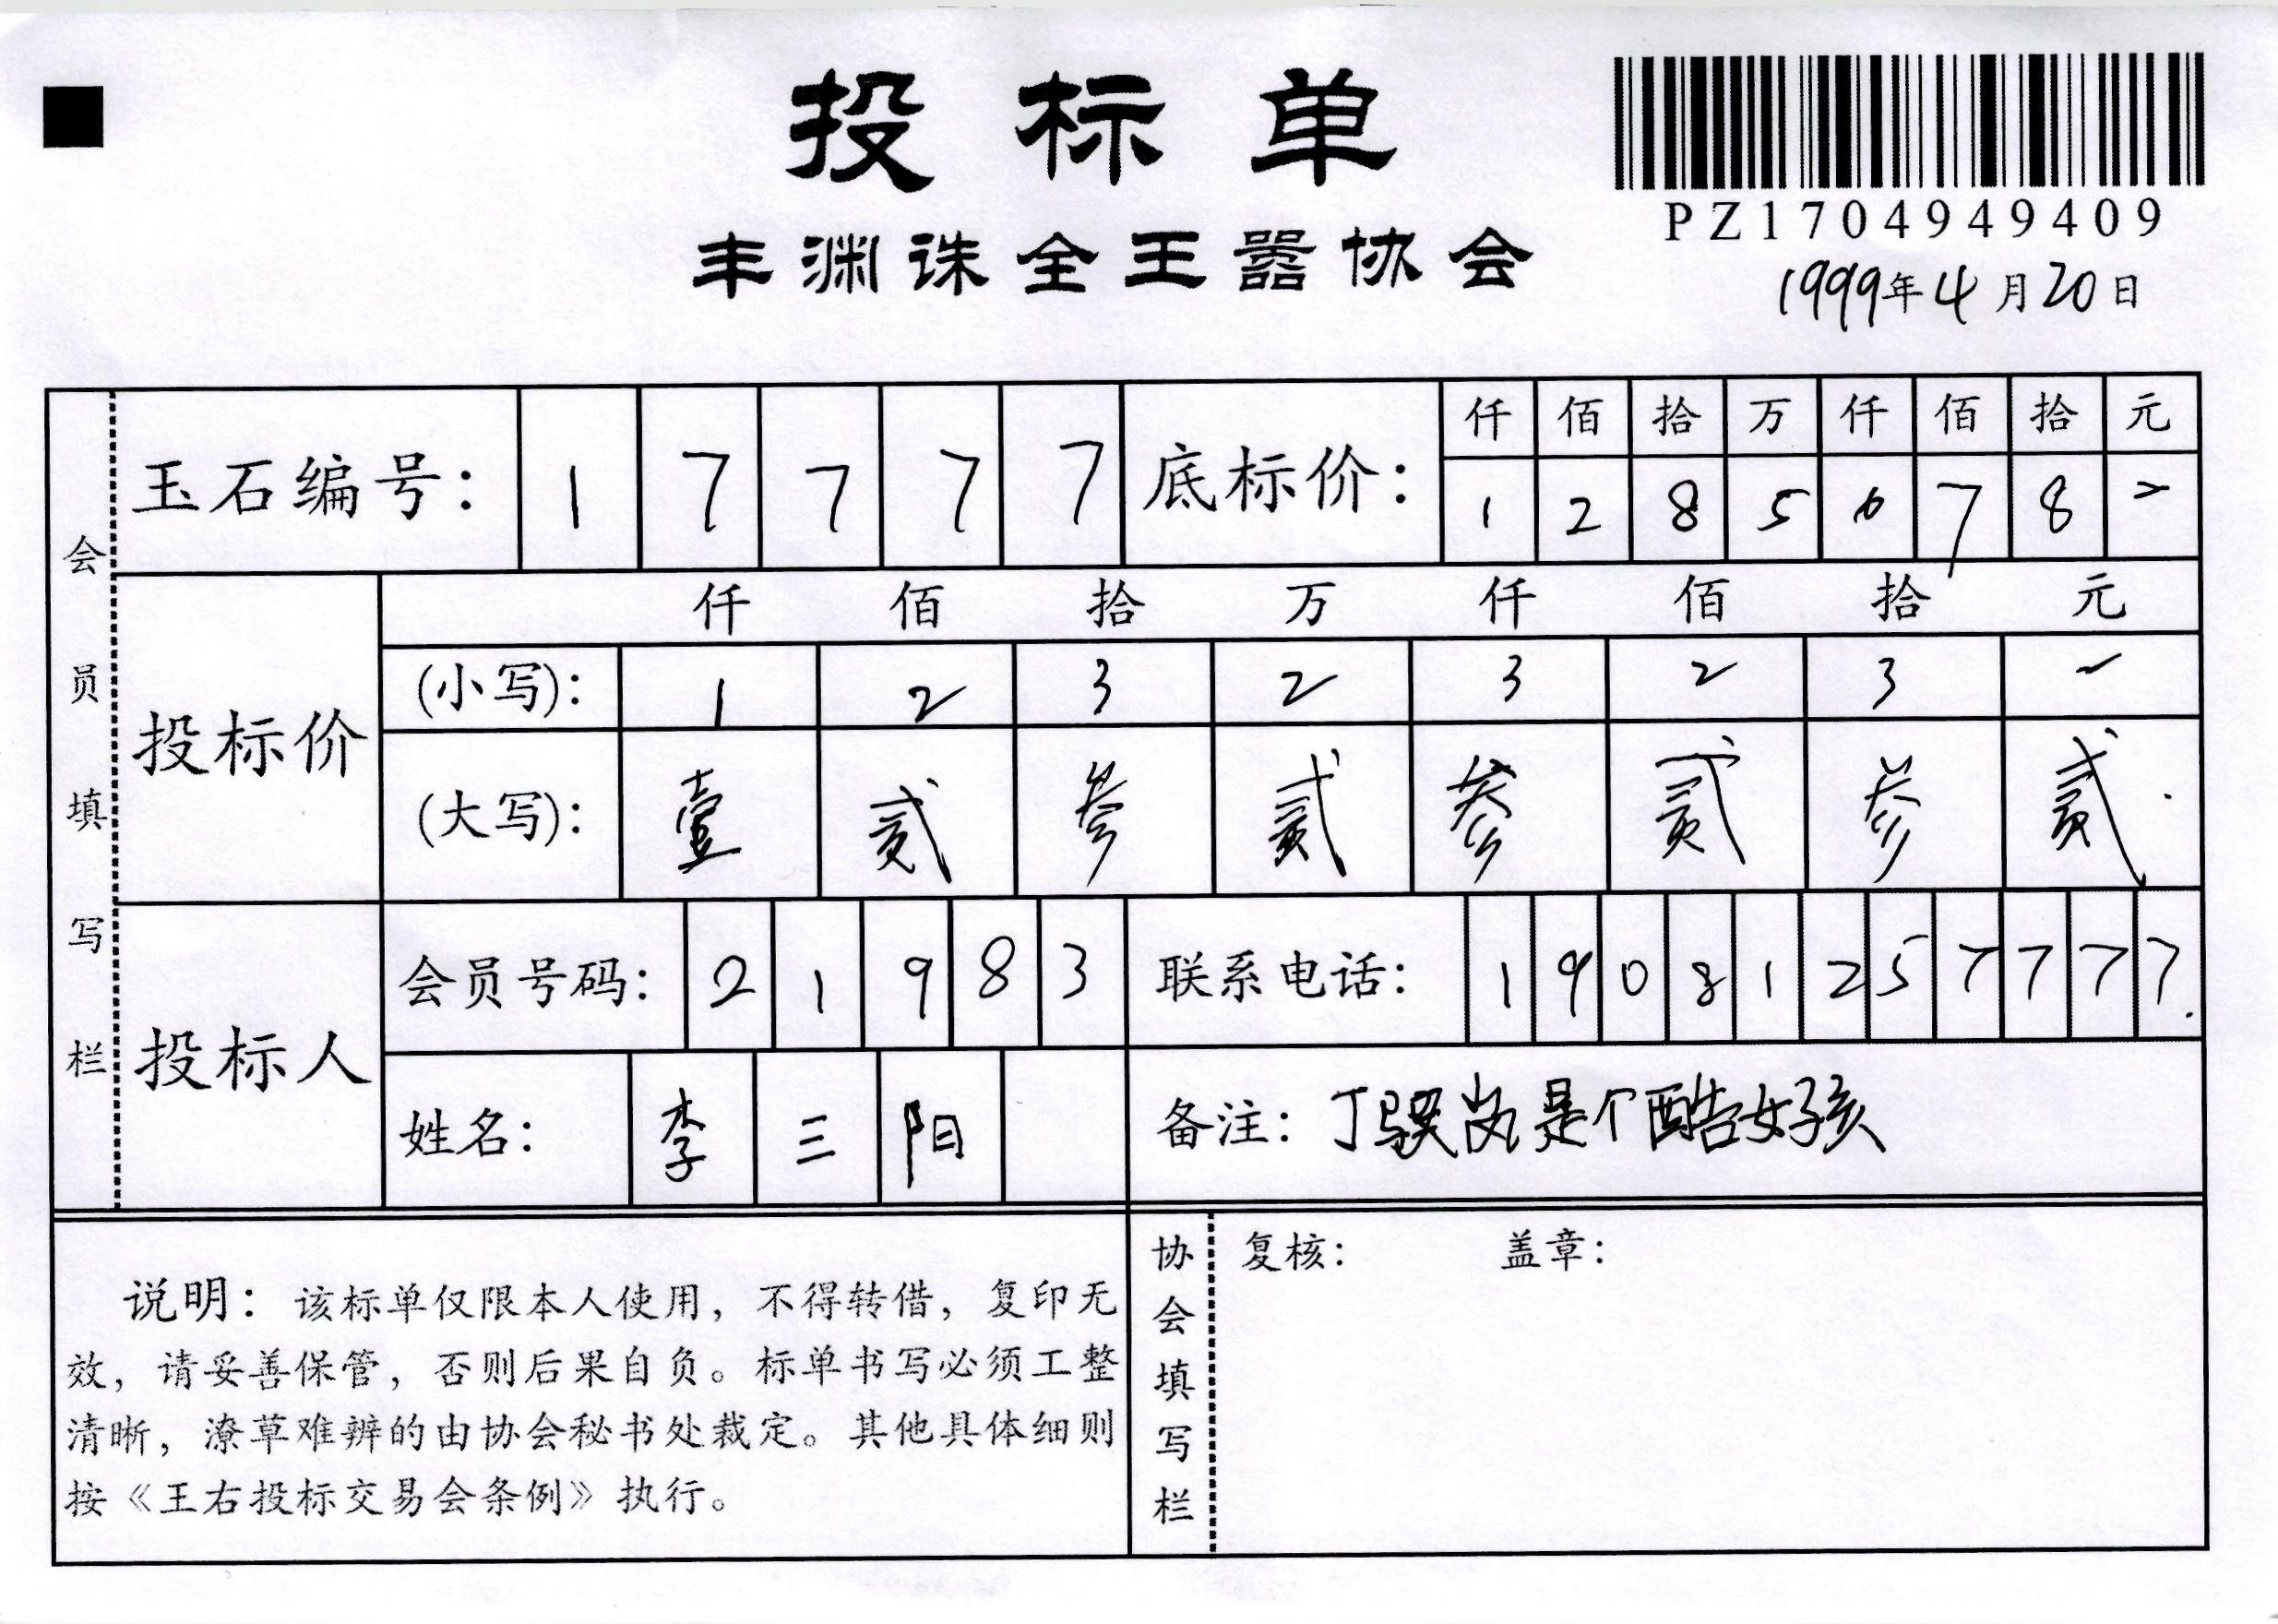 投标单
丰渊诛全王嚣协会
PZ1704949409
1999年4月20日
会员填写栏
玉石编号：17777
底标价：
仟佰拾万仟佰拾元
12856782
投标价
仟佰拾万仟佰拾元
(小写)：12323232
(大写)：壹贰叁贰叁贰叁贰
投标人
会员号码：21983
联系电话：19081257777
姓名：李三阳
备注：丁骐岚是个酷女孩
说明：该标单仅限本人使用，不得转借，复印无
效，请妥善保管，否则后果自负。标单书写必须工整
清晰，潦草难辨的由协会秘书处裁定。其他具体细则
按《王右投标交易会条例》执行。
协会填写栏
复核： 盖章：